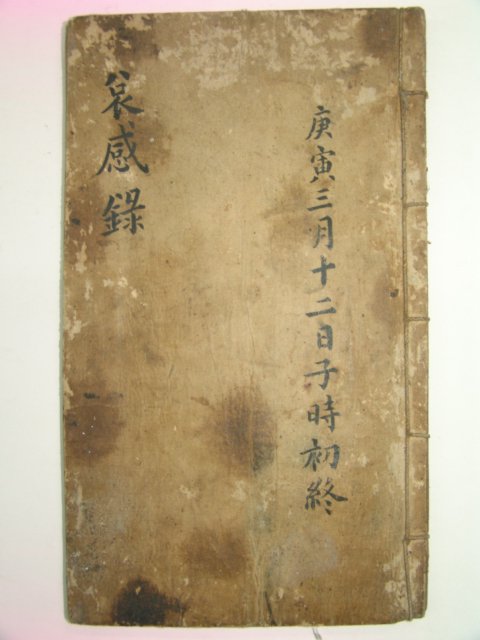 庚寅三月十二日子時初終
哀感錄